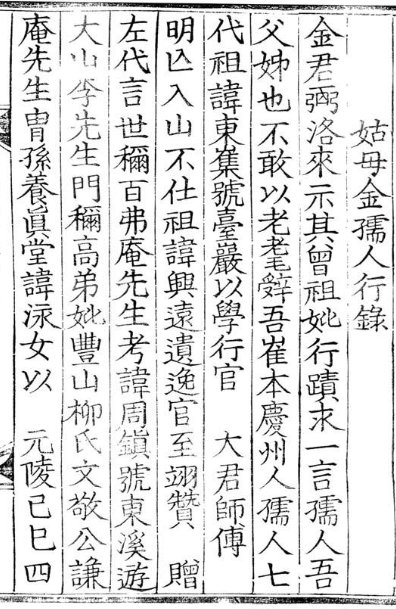 姑母金孺人行錄
金君弼洛來示其曾祖妣行蹟求一言孺人吾
父姊也不敢以老耄辭吾崔本慶州人孺人七
代祖諱東集號臺巖以學行官 大君師傅
明亡入山不仕祖諱興遠遺逸官至翊贊 贈
左代言世稱百弗庵先生考諱周鎭號東溪遊
大山李先生門稱高弟妣豐山柳氏文敬公謙
庵先生胄孫養眞堂諱泳女以 元陵己巳四